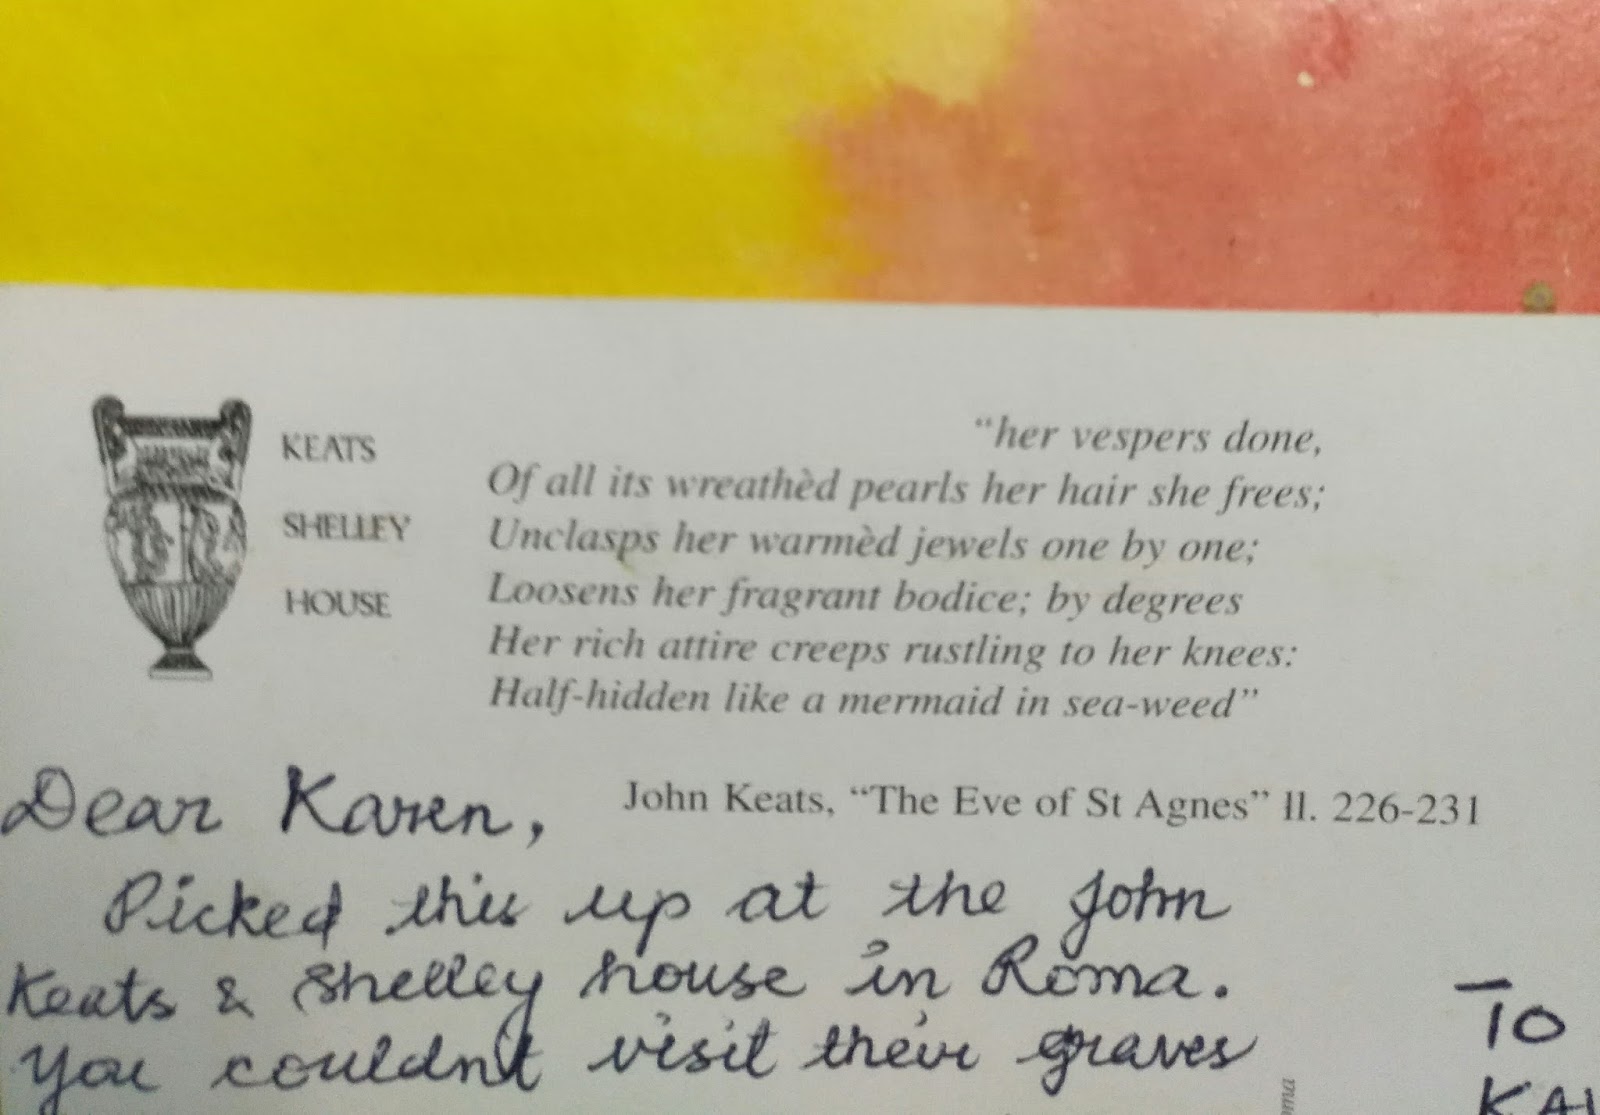 KEATS
SHELLEY
HOUSE
“her vespers done,
Of all its wreathèd pearls her hair she frees;
Unclasps her warmèd jewels one by one;
Loosens her fragrant bodice; by degrees
Her rich attire creeps rustling to her knees:
Half-hidden like a mermaid in sea-weed”
John Keats, “The Eve of St Agnes” ll. 226-231
Dear Karen,
Picked this up at the John
Keats & Shelley house in Roma.
You couldn't visit their graves
TO